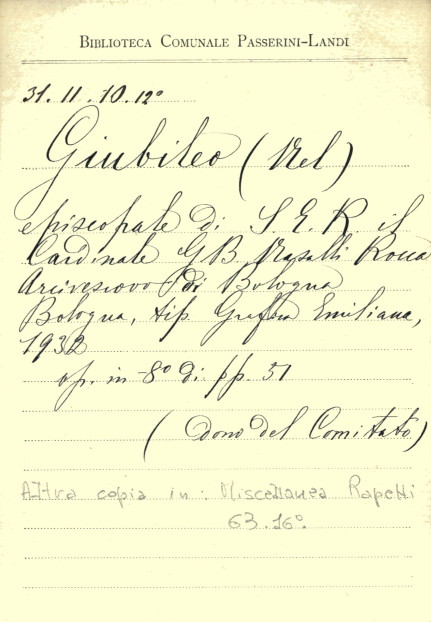 BIBLIOTECA COMUNALE PASSERINI-LANDI
31.11.10.12°
Giubileo (Nel)
episcopale di S. E. R. il
Cardinale G.B. Nasalli Rocca
Arcivescovo di Bologna
Bologna, tip. Grafica Emiliana,
1932
op. in -8° di pp. 51
(dono del Comitato)
Altra copia in: Miscellanea Rapetti
63.16°